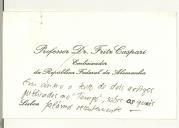 Professor Dr. Fritz Caspari
Embaixador
da República Federal da Alemanha
Em anexo o texto de dois artigos
publicados no "Tempo", sobre os quais
Lisboa falámos recentemente